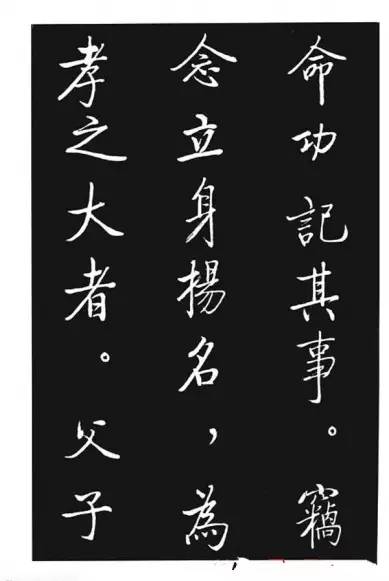 命功記其事。竊
念立身揚名，為
孝之大者。父子